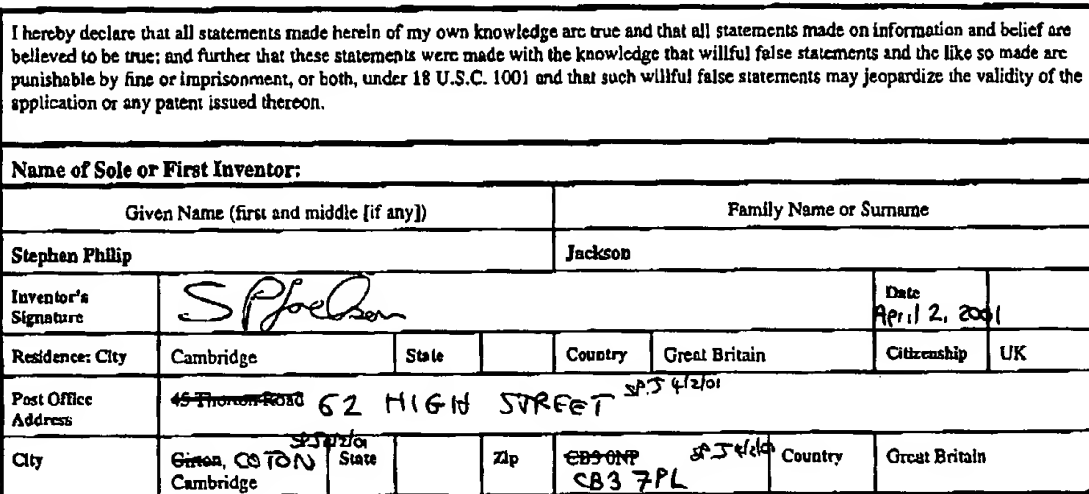 I hereby declare that all statements made herein of my own knowledge are true and that all statements made on information and belief are
believed to be true; and further that these statements were made with the knowledge that willful false statements and the like so made are
punishable by fine or imprisonment, or both, under 18 U.S.C. 1001 and that such willful false statements may jeopardize the validity of the
application or any patent issued thereon.
Name of Sole or First Inventor:
Given Name (first and middle [if any]) Family Name or Surname
Stephen Philip Jackson
Inventor's Signature SPJackson Date April 2, 2001
Residence: City Cambridge State Country Great Britain Citizenship UK
Post Office Address 45 Thornton Road 62 HIGH STREET SPJ 4/2/01
City Girton, COTON SPJ 4/2/01 Cambridge State Zip CB3 0NP SPJ 4/2/01 CB3 7PL Country Great Britain